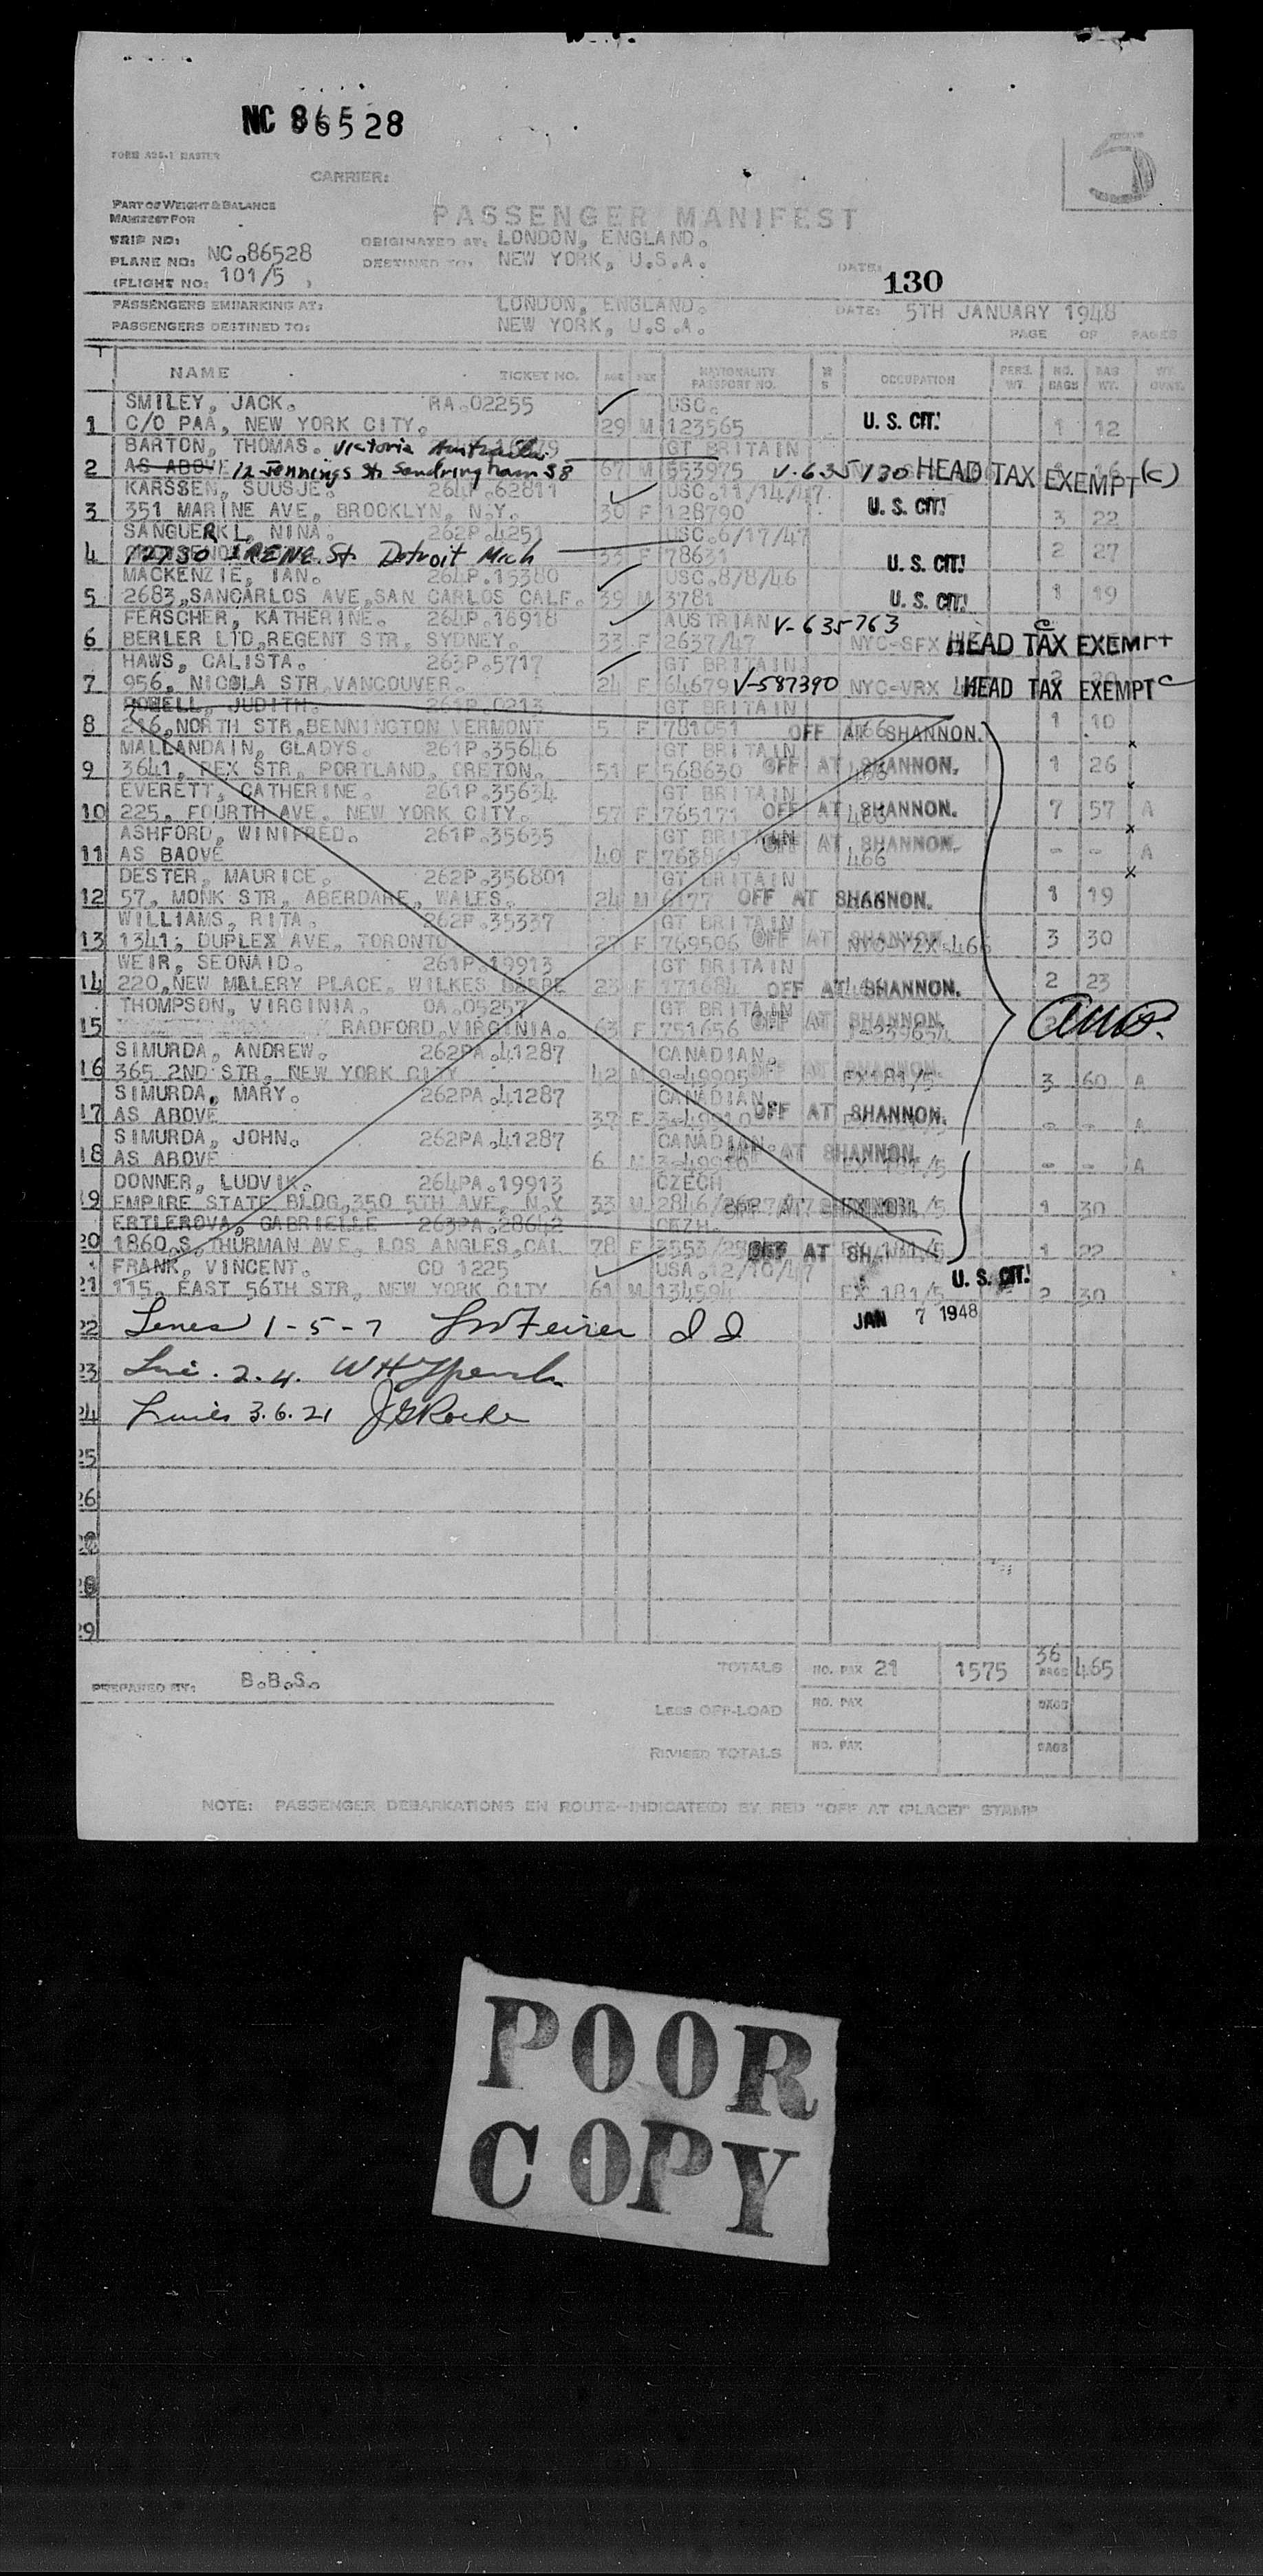 NC 86528
5
CARRIER:
PART OF WEIGHT & BALANCE
MANIFEST FOR
PASSENGER MANIFEST
TRIP NO:
PLANE NO: NC.86528
(FLIGHT NO: 101/5 )
ORIGINATED AT: LONDON, ENGLAND.
DESTINED TO: NEW YORK, U.S.A.
DATE:
130
PASSENGERS EMBARKING AT: LONDON, ENGLAND. DATE: 5TH JANUARY 1948
PASSENGERS DESTINED TO: NEW YORK, U.S.A. PAGE OF PAGES
NAME TICKET NO. AGE SEX NATIONALITY PASSPORT NO. OCCUPATION PERS. WT. NO. BAGS BAG WT.
SMILEY, JACK. RA.02255 USC.
1 C/O PAA, NEW YORK CITY. 29 M 123565 U. S. CIT! 1 12
BARTON, THOMAS. Victoria Australia GT BRITAIN
2 AS ABOVE 12 Jennings St. Sandringham S8 67 M 553975 V-635130 HEAD TAX EXEMPT (C)
KARSSEN, SUUSJE. 264P.62811 USC.11/14/47
3 351 MARINE AVE, BROOKLYN, N.Y. 30 F 128790 U. S. CIT! 3 22
SANGUERKL, NINA. 262P.4251 USC.6/17/47
4 12730 IRENE St Detroit Mich 33 F 78631 U. S. CIT! 2 27
MACKENZIE, IAN. 264P.15380 USC.8/8/46
5 2683,SANCARLOS AVE,SAN CARLOS CALF. 39 M 3781 U. S. CIT! 1 19
FERSCHER, KATHERINE. 264P.16918 AUSTRIAN V-635763
6 BERLER LTD,REGENT STR, SYDNEY. 33 F 2637/47 NYC-SFX HEAD TAX EXEMPT C
HAWS, CALISTA. 263P.5717 GT BRITAIN
7 956, NICOLA STR,VANCOUVER. 24 F 64679 V-587390 NYC-VRX HEAD TAX EXEMPT C
POWELL, JUDITH. 261P.0213 GT BRITAIN
8 216,NORTH STR,BENNINGTON VERMONT 5 F 781051 OFF AT SHANNON. 1 10
MALLANDAIN, GLADYS. 261P.35646 GT BRITAIN x
9 3641, REX STR, PORTLAND, ORETON. 51 F 568630 OFF AT SHANNON. 1 26
EVERETT, CATHERINE. 261P.35634 GT BRITAIN x
10 225, FOURTH AVE, NEW YORK CITY. 57 F 765171 OFF AT SHANNON. 7 57 A
ASHFORD, WINIFRED. 261P.35635 GT BRITAIN x
11 AS BAOVE 40 F 763869 OFF AT SHANNON. 466 - - A
DESTER, MAURICE. 262P.356801 GT BRITAIN x
12 57, MONK STR, ABERDARE, WALES. 24 M 6177 OFF AT SHANNON. 1 19
WILLIAMS, RITA. 262P.35337 GT BRITAIN
13 1341, DUPLEX AVE, TORONTO 27 F 769506 OFF AT SHANNON NYC-YZX.466 3 30
WEIR, SEONAID. 261P.19913 GT BRITAIN
14 220,NEW MALERY PLACE, WILKES BARRE 23 F 171684 OFF AT SHANNON. 2 23
THOMPSON, VIRGINIA. OA.05257 GT BRITAIN
15 RADFORD,VIRGINIA. 63 F 751656 OFF AT SHANNON
SIMURDA, ANDREW. 262PA.41287 CANADIAN.
16 365 2ND STR, NEW YORK CITY 42 M 9-49905 OFF AT SHANNON. EX181/5 3 60 A
SIMURDA, MARY. 262PA.41287 CANADIAN.
17 AS ABOVE 37 F 3-49910 OFF AT SHANNON. - - A
SIMURDA, JOHN. 262PA.41287 CANADIAN.
18 AS ABOVE 6 M 3-49910 OFF AT SHANNON EX 181/5 - - A
DONNER, LUDVIK. 264PA.19913 CZECH
19 EMPIRE STATE BLDG,350 5TH AVE, N.Y 33 M 2846/ OFF AT SHANNON. 1 30
ERTLEROVA, GABRIELLE 263PA.28642 CEZH.
20 1860,S,THURMAN AVE, LOS ANGLES,CAL 78 F 3553/ OFF AT SHANNON 1 22
FRANK, VINCENT. CD 1225 USA.12/10/47
21 115, EAST 56TH STR, NEW YORK CITY 61 M 134594 EX 181/5 U. S. CIT! 2 30
22 Lines 1-5-7 JAN 7 1948
23 Line. 2.4.
24 Lines 3.6.21 J G Roche
25
26
27
28
29
TOTALS NO. PAX 21 1575 36 BAGS 465
PREPARED BY: B.B.S.
LESS OFF-LOAD NO. PAX BAGS
REVISED TOTALS NO. PAX BAGS
NOTE: PASSENGER DEBARKATIONS EN ROUTE-INDICATED BY RED "OFF AT (PLACE)" STAMP
POOR
COPY